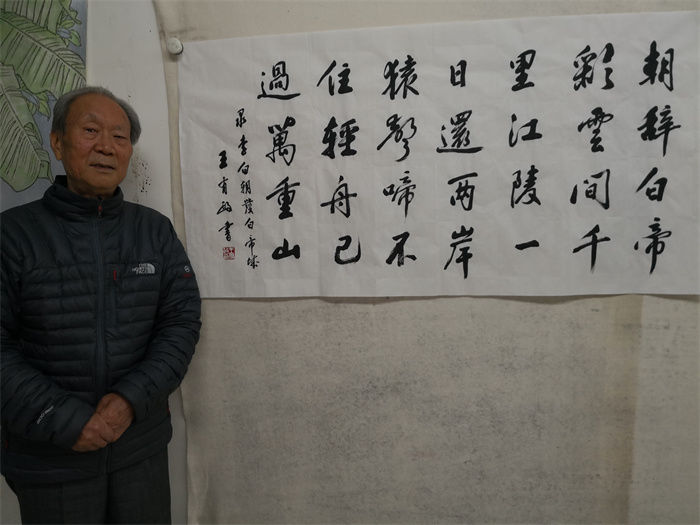 朝辞白帝
彩雲間千
里江陵一
日還两岸
猿聲啼不
住輕舟已
過萬重山
录李白朝發白帝城
王有 書
THE
NORTH
FACE